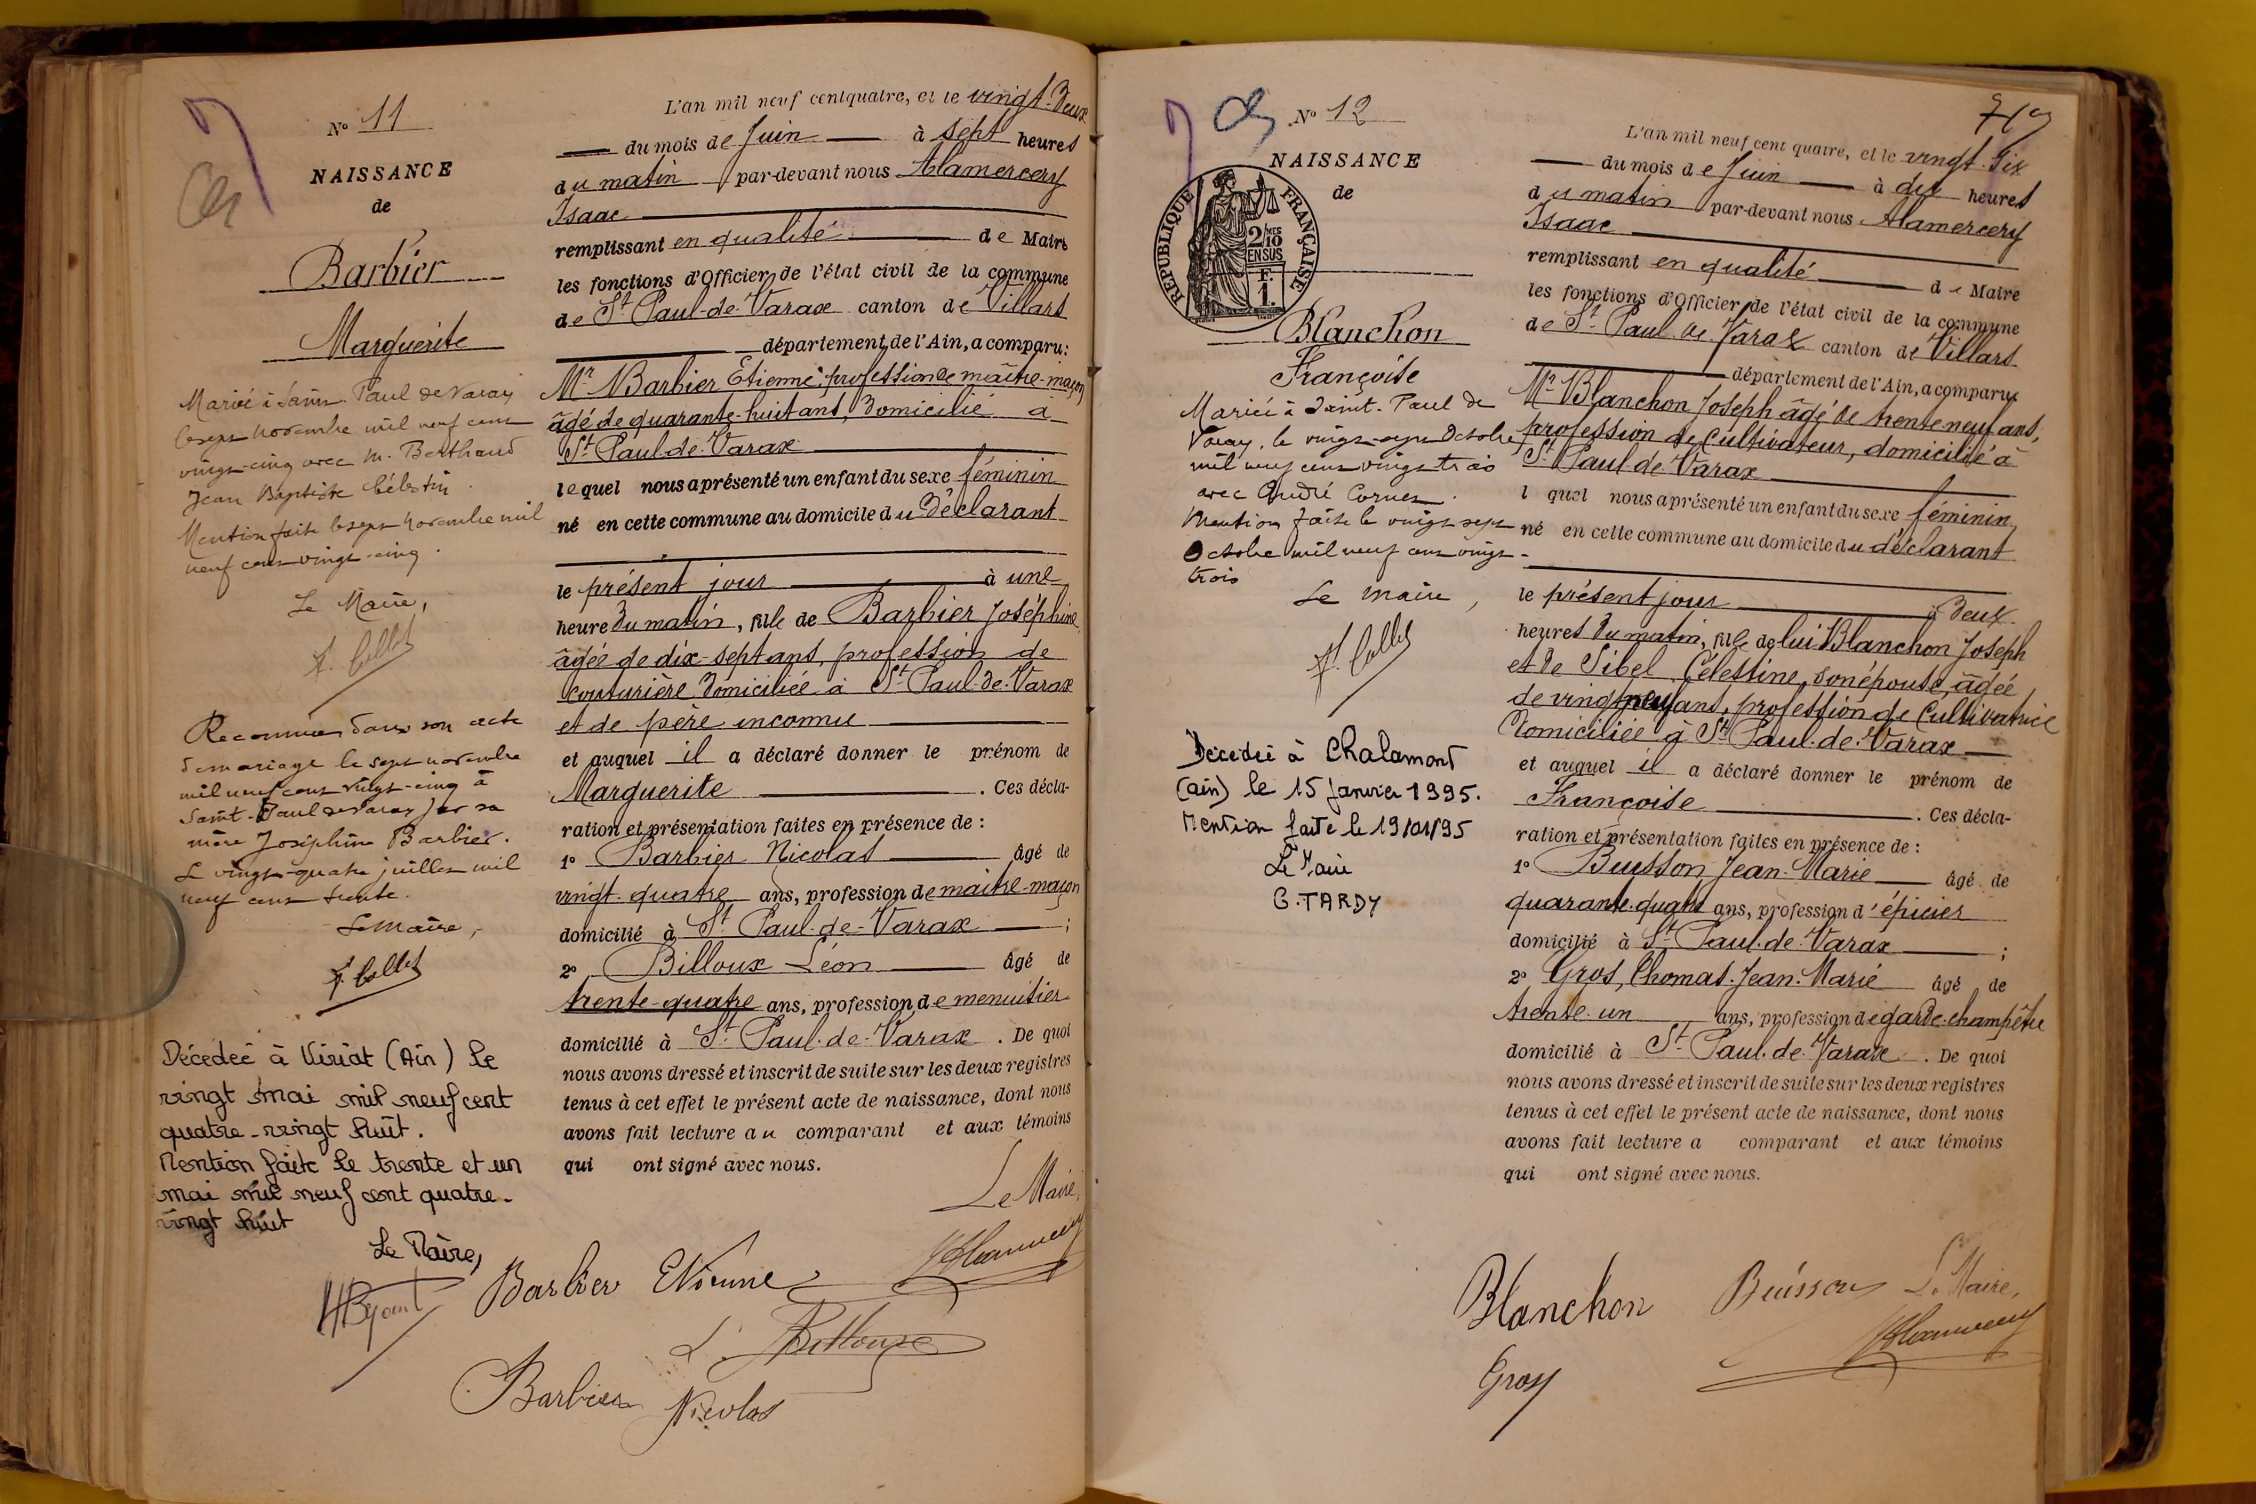 N° 11
NAISSANCE
de
Barbier
Marguerite
Mariée à Saint Paul de Varax
le sept novembre mil neuf cent
vingt-cinq avec M. Berthaud
Jean Baptiste Célestin.
Mention faite le sept novembre mil
neuf cent vingt-cinq.
Le Maire,
Reconnue dans son acte
de mariage le sept novembre
mil neuf cent vingt-cinq à
Saint-Paul de Varax par sa
mère Joséphine Barbier.
Le vingt-quatre juillet mil
neuf cent trente.
Le maire,
Décédée à Viriat (Ain) le
vingt mai mil neuf cent
quatre-vingt huit.
Mention faite le trente et un
mai mil neuf cent quatre-
vingt huit
Le Maire,
L'an mil neuf cent quatre, et le vingt-deux
du mois de Juin à sept heures
du matin par-devant nous Alamercery
Isaac
remplissant en qualité de Maire
les fonctions d'Officier de l'état civil de la commune
de St Paul-de-Varax canton de Villars
département de l'Ain, a comparu:
Mr Barbier Etienne, profession de maître-maçon
âgé de quarante-huit ans, domicilié à
St Paul-de-Varax
lequel nous a présenté un enfant du sexe féminin
né en cette commune au domicile du déclarant
le présent jour à une
heure du matin, fille de Barbier Joséphine
âgée de dix-sept ans, profession de
couturière domiciliée à St Paul-de-Varax
et de père inconnu
et auquel il a déclaré donner le prénom de
Marguerite . Ces décla-
ration et présentation faites en présence de :
1° Barbier Nicolas âgé de
vingt-quatre ans, profession de maître-maçon
domicilié à St Paul-de-Varax ;
2° Billoux Léon âgé de
trente-quatre ans, profession de menuisier
domicilié à St Paul-de-Varax . De quoi
nous avons dressé et inscrit de suite sur les deux registres
tenus à cet effet le présent acte de naissance, dont nous
avons fait lecture au comparant et aux témoins
qui ont signé avec nous.
Le Maire,
Barbier Etienne
L. Billoux
Barbier Nicolas
N° 12
NAISSANCE
de
RÉPUBLIQUE FRANÇAISE
2/10 MES
EN SUS
F.
1.
Blanchon
Françoise
Mariée à Saint-Paul de
Varax, le vingt-sept Octobre
mil neuf cent vingt trois
avec André Cornes.
Mention faite le vingt sept
Octobre mil neuf cent vingt-
trois
Le maire,
Décédée à Chalamont
(ain) le 15 Janvier 1995.
Mention faite le 19/01/95
Le Maire
G. TARDY
L'an mil neuf cent quatre, et le vingt-six
du mois de Juin à dix heures
du matin par-devant nous Alamercery
Isaac
remplissant en qualité de Maire
les fonctions d'Officier de l'état civil de la commune
de St Paul-de-Varax canton de Villars
département de l'Ain, a comparu
Mr Blanchon Joseph âgé de trente neuf ans,
profession de Cultivateur, domicilié à
St Paul-de-Varax
l quel nous a présenté un enfant du sexe féminin
né en cette commune au domicile du déclarant
le présent jour à deux
heures du matin, fille de lui Blanchon Joseph
et de Sibel Célestine, son épouse, âgée
de vingt neuf ans, profession de Cultivatrice
domiciliée à St Paul-de-Varax
et auquel il a déclaré donner le prénom de
Françoise . Ces décla-
ration et présentation faites en présence de :
1° Buisson Jean-Marie âgé de
quarante-quatre ans, profession d'épicier
domicilié à St Paul-de-Varax ;
2° Gros, Thomas-Jean-Marie âgé de
trente-un ans, profession de garde-champêtre
domicilié à St Paul-de-Varax . De quoi
nous avons dressé et inscrit de suite sur les deux registres
tenus à cet effet le présent acte de naissance, dont nous
avons fait lecture a comparant et aux témoins
qui ont signé avec nous.
Blanchon Buisson Le Maire,
Gros